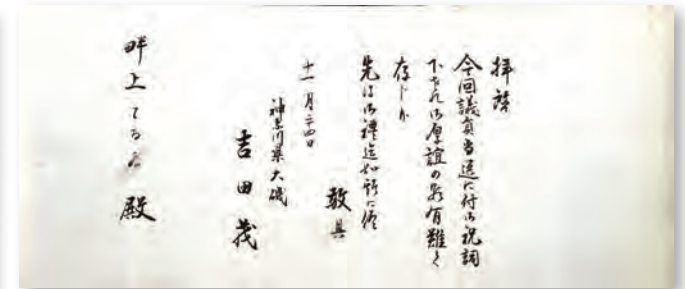 拝啓
今回議員当選に付御祝詞
下され御厚誼の段有難く
存じ候
先は御礼迄如斯に候
敬具
十一月二十四日
神奈川県大磯
吉田茂
畔上てる殿